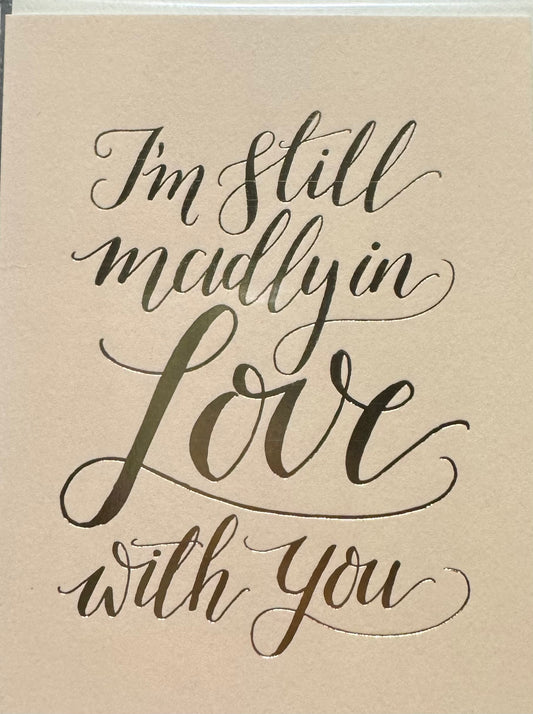 I'm Still
madly in
Love
with you